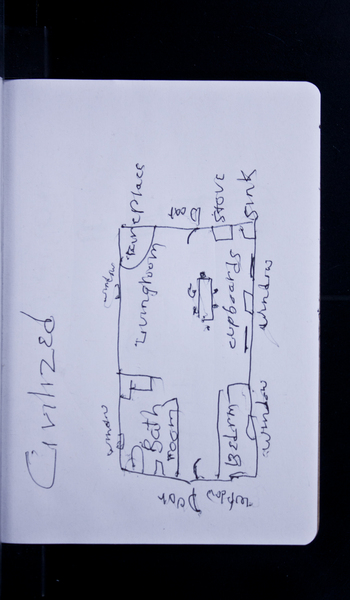 Civilized
window
window
fireplace
Livingroom
Bath
room
stove
sink
cupboards
window
Bedrm
window